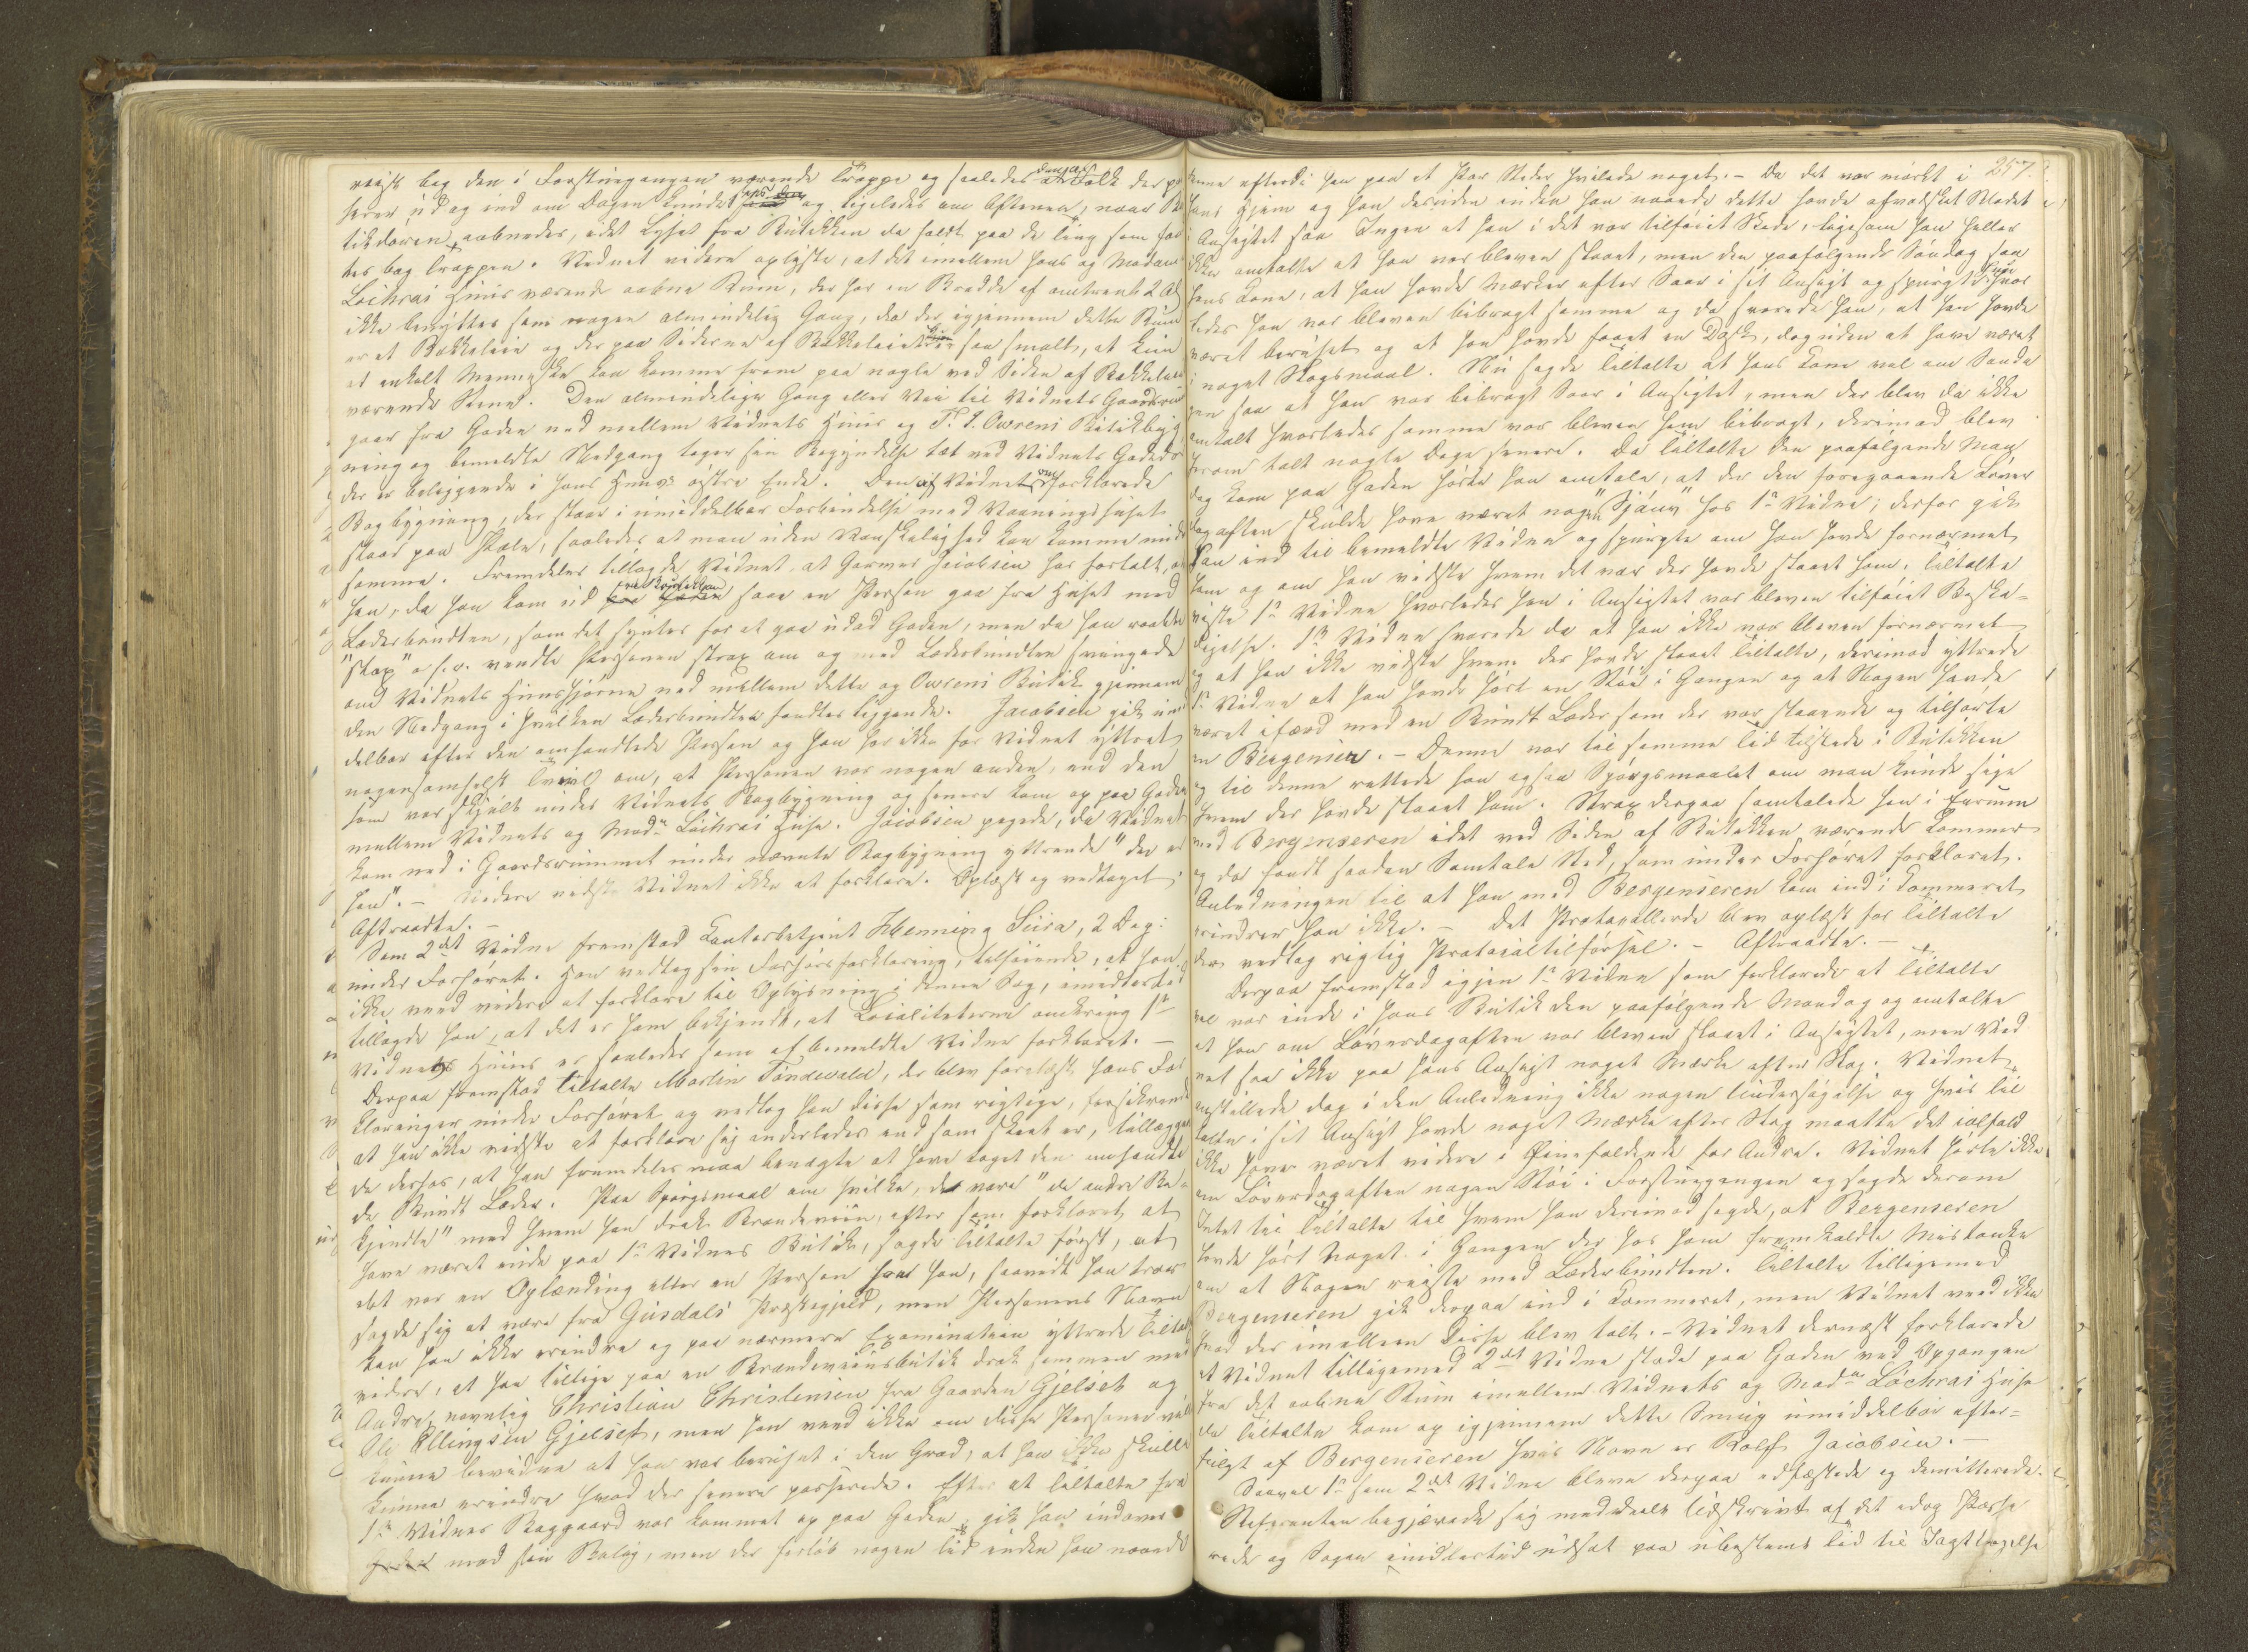 reist bag den i Forstuegangen værende Trappe og saaledes at Folk der pas
serer ud og ind om Dagen kunde see den og ligeledes om Aftenen, naar Bu
tikdøren aabnedes, idet Lyset fra Butikken da faldt paa de Ting som fan
tes bag Trappen. Vidnet videre oplyste, at det imellem hans og Madam
Lochrai Huus værende aabne Rum, der har en Bredde af omtrent 2 Al
ikke benyttes som nogen almindelig Gang, da der igjennem dette Rum
er et Bækkeleie og der paa Siderne af Bækkeleiet er saa smalt, at kun
et enkelt Menneske kan komme frem paa nogle ved Siden af Bækkeleiet
værende Stene. Den almindelige Gang eller Vei til Vidnets Gaardsrum
gaar fra Gaden ned mellem Vidnets Huus og T. J. Owreni Butikbyg
ning og bemeldte Nedgang tager sin Begyndelse tæt ved Vidnets Gadedør
der er beliggende i hans Huus's østre Ende. Den af Vidnet omforklarede
Bagbygning, der staar i umiddelbar Forbindelse med Vaaningshuset
staar paa Pæle, saaledes at man uden Vanskelighed kan komme under
samme. Fremdeles tillagde Vidnet at Garver Jacobsen har fortalt, at
han, da han kom ud fra Butikken saae en Person gaa fra Huset med
Læderbundten, som det syntes for at gaa udad Gaden, men da han raabte
"stop" o. s. v. vendte Personen strax om og med Læderbundten svingede
om Vidnets Huushjørne ned mellem dette og Owreni Butik gjennem
den Nedgang i hvilken Læderbundten fandtes liggende. Jacobsen gik umid
delbar efter den omhandlede Person og han har ikke for Vidnet yttret
nogensomhelst Tvivl om, at Personen var nogen anden, end den
som var skjult under Vidnets Bagbygning og senere kom op paa Gaden
mellem Vidnets og Madn Lochrai Huse. Jacobsen pegede, da Vidnet
kom ned i Gaardsrummet under nævnte Bagbygning yttrende "der er
han". – Videre vidste Vidnet ikke at forklare. Oplæst og vedtaget.
Aftraadte. –
Som 2det Vidne fremstod Contorbetjent Henning Siira, 2 Deg:
under Forhøret. Han vedtog sin Forhørsforklaring, tilføiende, at han
ikke veed videre at forklare til Oplysning i denne Sag, imidlertid
tillagde han, at det er ham bekjendt, at Localiteterne omkring 1ste
Vidnets Huus er saaledes som af bemeldte Vidne forklaret. –
Derpaa fremstod Tiltalte Martin Tondevald, der blev forelæst hans For
klaringer under Forhøret og vedtog han disse som rigtige, forsikrende
at han ikke vidste at forklare sig anderledes end som skeet er, tillæggen
de derhos, at han fremdeles maa benægte at have taget den omhandle
de Bundt Læder. Paa Spørgsmaal om hvilke, det være "de andre Be-
kjendte" med hvem han drak Brændeviin, efter som forklaret at
have været inde paa 1ste Vidnes Butik, sagde Tiltalte først, at
det var en Oplænding eller en Person som han, saavidt han troer
sagde sig at være fra Gusdals Præstegjeld, men Personens Navn
kan han ikke erindre og paa nærmere Examination yttrede Tiltalte
videre, at han tillige paa en Brændeviinsbutik drak sammen med
Andre, navnlig Christian Christensen fra Gaarden Gjelset og
Ole Ellingsen Gjelset, men han veed ikke om disse Personer vil
kunne bevidne at han var beruset i den Grad, at han ikke skulle
kunne erindre hvad der senere passerede. Efter at Tiltalte fra
1ste Vidnes Baggaard var kommet op paa Gaden, gik han indover
mod sin Bolig, men der forløb nogen Tid inden han naaede
257.
denne efterdi han paa et Par Steder hvilede noget. – Da det var mørkt i
hans Hjem og han desuden inden han naaede dette havde afvasket Blodet
i Ansigtet saa Ingen at han i det var tilføiet Skade, ligesom han heller
ikke omtalte at han var bleven slaaet, men den paafølgende Søndag saa
hans Kone, at han havde Mærker efter Saar i sit Ansigt og spurgte hun hvor
ledes han var bleven bibragt samme og da svarede han, at han havde
været beruset og at han havde faaet en Dask, dog uden at have været
i noget Slagsmaal. Nu sagde Tiltalte at hans Kone vel om Sønda
gen saa at han var bibragt Saar i Ansigtet, men der blev da ikke
omtalt hvorledes samme var bleven ham bibragt, derimod blev
herom talt nogle Dage senere. Da Tiltalte den paafølgende Man
dag kom paa Gaden hørte han omtale, at der den foregaaende Løver
dagaften skulde have været nogen "Sjáuu" hos 1ste Vidne; derfor gik
han ind til bemeldte Vidne og spurgte om han havde fornærmet
ham og om han vidste hvem det var der havde slaaet ham. Tiltalte
viste 1ste Vidne hvorledes han i Ansigtet var bleven tilføiet Beska-
digelse. 1ste Vidne svarede da at han ikke var bleven fornærmet
og at han ikke vidste hvem der havde slaaet Tiltalte, derimod yttrede
1ste Vidne at han havde hørt en Støi i Gangen og at Nogen havde
været ifærd med en Bundt Læder som der var staaende og tilhørte
en Bergenser. – Denne var til samme Tid tilstede i Butikken
og til denne rettede han ogsaa Spørgsmaalet om man kunde sige
hvem der havde slaaet ham. Strax derpaa samtalede han i Eenrum
med Bergenseren idet ved Siden af Butikken værende Kammer
og der fandt saadan Samtale Sted, som under Forhøret forklaret.
Anledningen til at han med Bergenseren kom ind i Kammeret
erindrer han ikke. – Det Protocollerede blev oplæst for Tiltalte
der vedtog rigtig Protocoltilførsel. – Aftraadte. –
Derpaa fremstod igjen 1ste Vidne som forklarede at Tiltalte
vel var inde i hans Butik den paafølgende Mandag og omtalte
at han om Løverdagaften var bleven slaaet i Ansigtet, men Vid
net saa ikke paa hans Ansigt noget Mærke efter Slag. Vidnet
anstillede dog i den Anledning ikke nogen Undersøgelse og hvis Til
talte i sit Ansigt havde noget Mærke efter Slag maatte det ialfald
ikke have været videre i Øinefaldende for Andre. Vidnet hørte ikke
om Løverdagaften nogen Støi i Forstuegangen og sagde derom
Intet til Tiltalte til hvem han derimod sagde, at Bergenseren
havde hørt Noget i Gangen der hos ham fremkaldte Mistanke
om at Nogen reiste med Læderbundten. Tiltalte tilligemed
Bergenseren gik derpaa ind i Kammeret, men Vidnet veed ikke
hvad der imellem Disse blev talt. – Vidnet dernæst forklarede
at Vidnet tilligemed 2det Vidne stode paa Gaden ved Opgangen
fra det aabne Rum imellem Vidnets og Madn Lochrai Huse
da Tiltalte kom op igjennem dette Smug umiddelbar efter-
fulgt af Bergenseren hvis Navn er Rolf Jacobsen. –
Saavel 1ste som 2det Vidne bleve derpaa edfæstede og demitterede.
Referenten begjærede sig meddeelt Udskrivt af det idag Passe
rede og Sagen imidlertid udsat paa ubestemt Tid til Iagttagelse